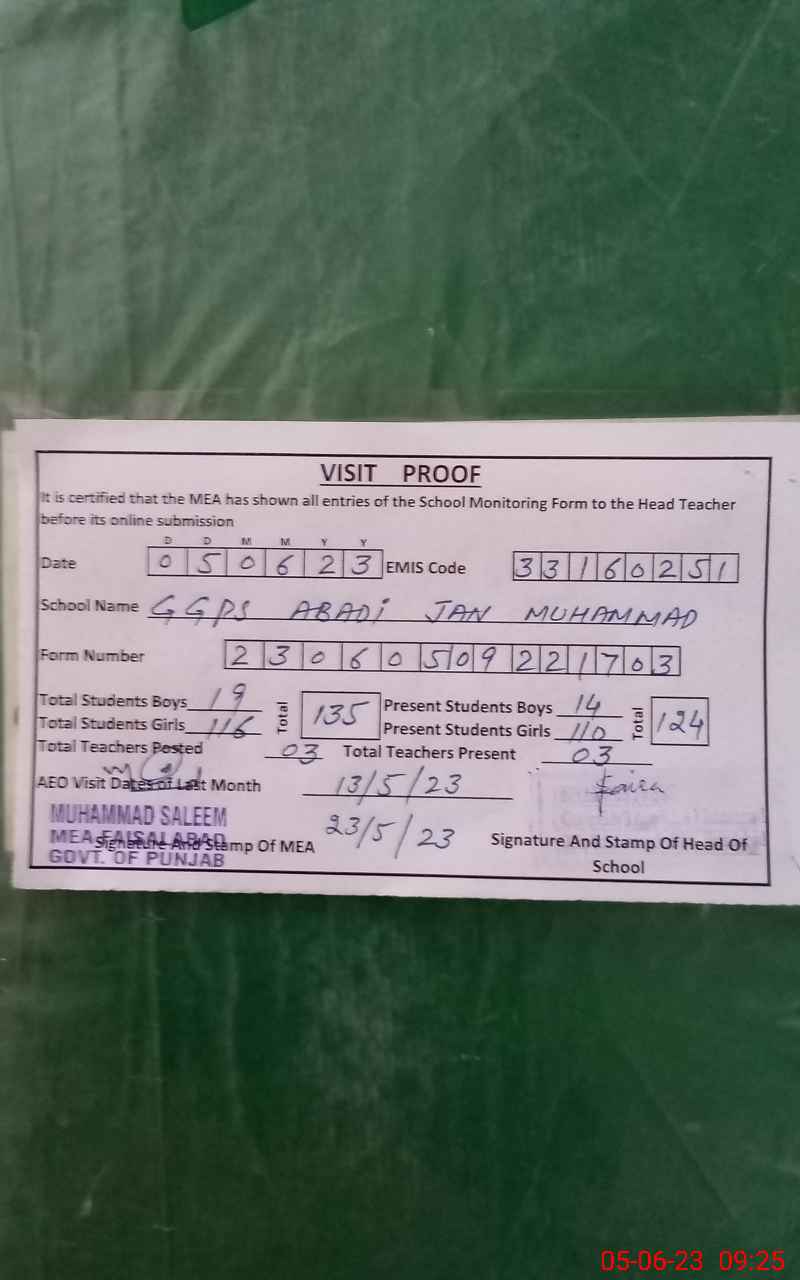 VISIT PROOF
It is certified that the MEA has shown all entries of the School Monitoring Form to the Head Teacher
before its online submission
D D M M Y Y
Date 0 5 0 6 2 3 EMIS Code 3 3 1 6 0 2 5 1
School Name GGPS ABADI JAN MUHAMMAD
Form Number 2 3 0 6 0 5 0 9 2 2 1 7 0 3
Total Students Boys 19 Total 135 Present Students Boys 14 Total 124
Total Students Girls 116 Present Students Girls 110
Total Teachers Posted 03 Total Teachers Present 03
AEO Visit Dates of Last Month 13/5/23
23/5/23
MUHAMMAD SALEEM
MEA FAISALABAD
GOVT. OF PUNJAB
Signature And Stamp Of MEA
Signature And Stamp Of Head Of
School
05-06-23 09:25